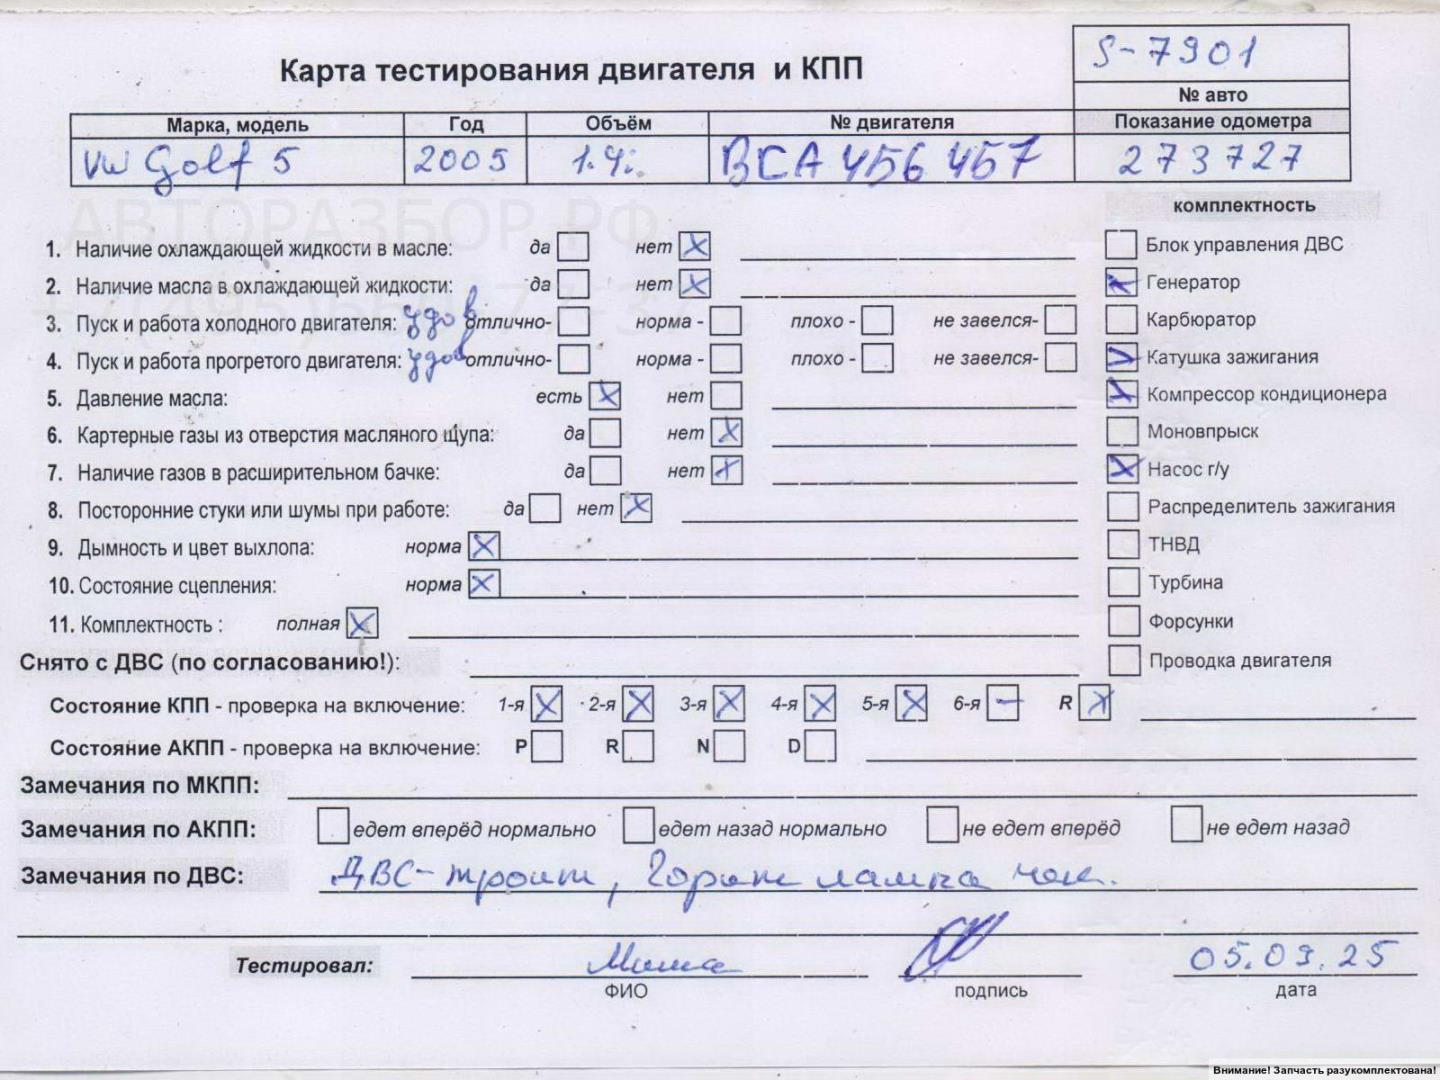 Карта тестирования двигателя и КПП
S-7901
№ авто
Марка, модель Год Объём № двигателя Показание одометра
VW Golf 5 2005 1.4i. BCA 456 457 273727
АВТОРАЗБОР.РФ
комплектность
1. Наличие охлаждающей жидкости в масле: да нет X
Блок управления ДВС
2. Наличие масла в охлаждающей жидкости: да нет X
Генератор
3. Пуск и работа холодного двигателя: удов отлично- норма - плохо - не завелся-
Карбюратор
4. Пуск и работа прогретого двигателя: удов отлично- норма - плохо - не завелся-
Катушка зажигания
5. Давление масла: есть X нет
Компрессор кондиционера
6. Картерные газы из отверстия масляного щупа: да нет X
Моновпрыск
7. Наличие газов в расширительном бачке: да нет X
Насос г/у
8. Посторонние стуки или шумы при работе: да нет X
Распределитель зажигания
9. Дымность и цвет выхлопа: норма X
ТНВД
10. Состояние сцепления: норма X
Турбина
11. Комплектность : полная X
Форсунки
Снято с ДВС (по согласованию!):
Проводка двигателя
Состояние КПП - проверка на включение: 1-я X 2-я X 3-я X 4-я X 5-я X 6-я – R X
Состояние АКПП - проверка на включение: P R N D
Замечания по МКПП:
Замечания по АКПП: едет вперёд нормально едет назад нормально не едет вперёд не едет назад
Замечания по ДВС: ДВС-троит, Горит лампа чек.
Тестировал: Миша 05.09.25
ФИО подпись дата
Внимание! Запчасть разукомплектована!